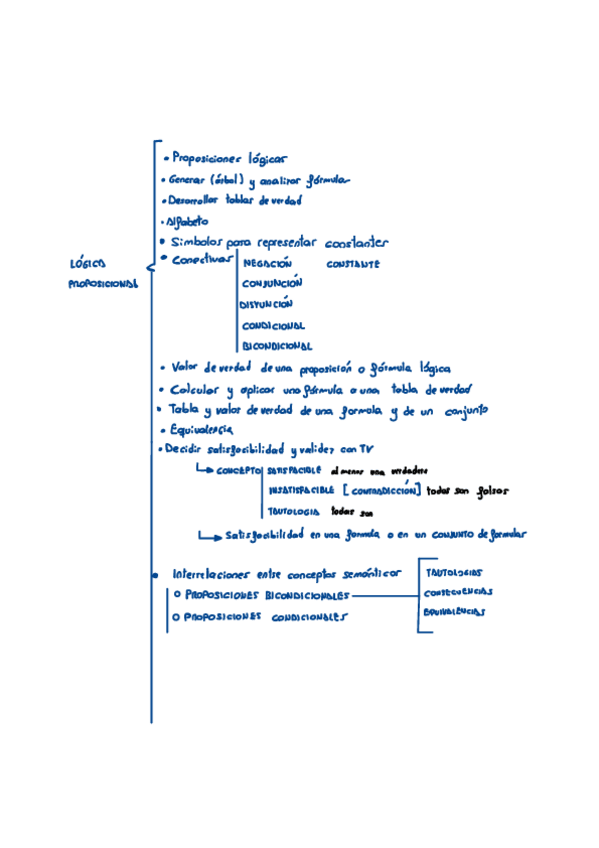 • Proposiciones lógicas
• Generar (árbol) y analizar fórmula
• Desarrollar tablas de verdad
• Alfabeto
• Símbolos para representar constantes
• Conectivas
NEGACIÓN CONSTANTE
CONJUNCIÓN
DISYUNCIÓN
CONDICIONAL
BICONDICIONAL
LÓGICA
PROPOSICIONAL
• Valor de verdad de una proposición o fórmula lógica
• Calcular y aplicar una fórmula a una tabla de verdad
• Tabla y valor de verdad de una formula y de un conjunto
• Equivalencia
• Decidir satisfacibilidad y validez con TV
↳ CONCEPTO SATISFACIBLE al menos una verdadera
INSATISFACIBLE [CONTRADICCIÓN] todas son falsas
TAUTOLOGIA todas son
↳ Satisfacibilidad en una formula o en un CONJUNTO de formulas
• Interrelaciones entre conceptos semánticos
○ PROPOSICIONES BICONDICIONALES
○ PROPOSICIONES CONDICIONALES
TAUTOLOGIAS
CONSECUENCIAS
EQUIVALENCIAS